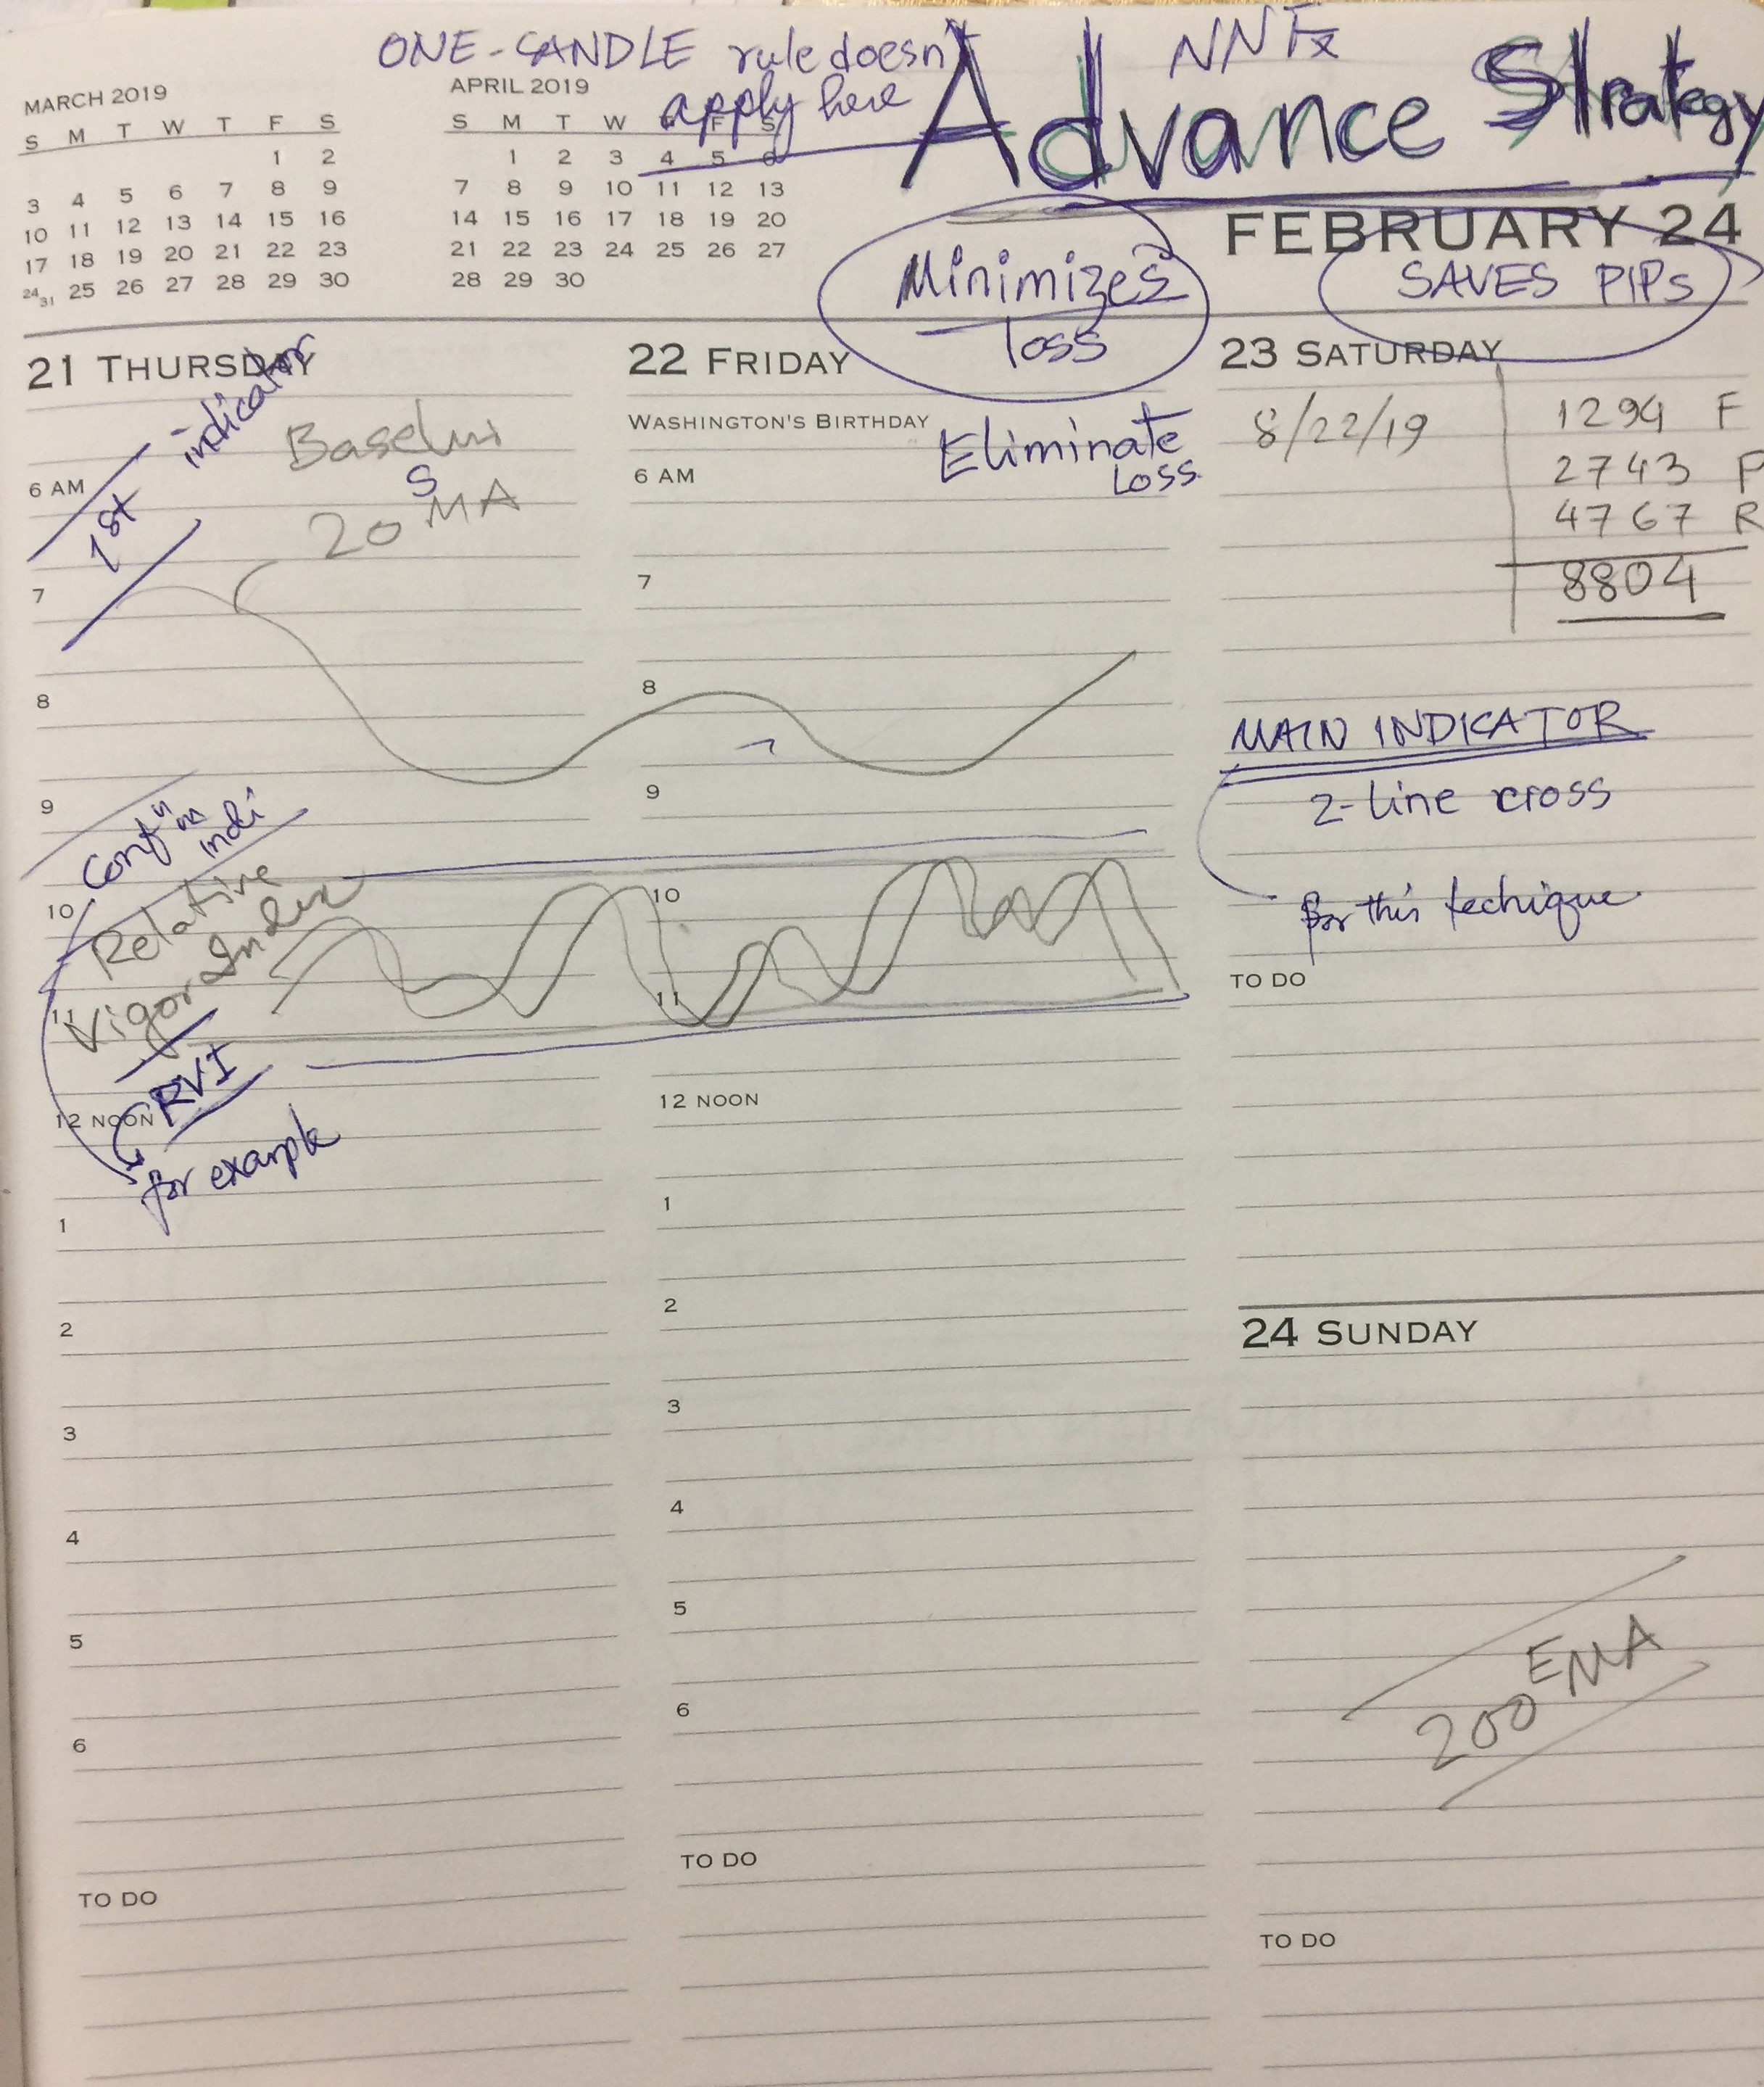 ONE-CANDLE rule doesn't
apply here
NNFx
Advance Strategy
MARCH 2019
S M T W T F S
1 2
3 4 5 6 7 8 9
10 11 12 13 14 15 16
17 18 19 20 21 22 23
24/31 25 26 27 28 29 30
APRIL 2019
S M T W T F S
1 2 3 4 5 6
7 8 9 10 11 12 13
14 15 16 17 18 19 20
21 22 23 24 25 26 27
28 29 30
FEBRUARY 24
Minimizes
loss
SAVES PIPs
21 THURSDAY
1st indicator
Baseline
20 SMA
6 AM
7
8
9
Conf
indi
10
Relative
Vigor Index
11
RVI
12 NOON
for example
1
2
3
4
5
6
TO DO
22 FRIDAY
WASHINGTON'S BIRTHDAY
Eliminate
Loss
6 AM
7
8
9
10
11
12 NOON
1
2
3
4
5
6
TO DO
23 SATURDAY
8/22/19
1294 F
2743 P
4767 R
8804
MAIN INDICATOR
2-line cross
for this techique
TO DO
24 SUNDAY
200 EMA
TO DO